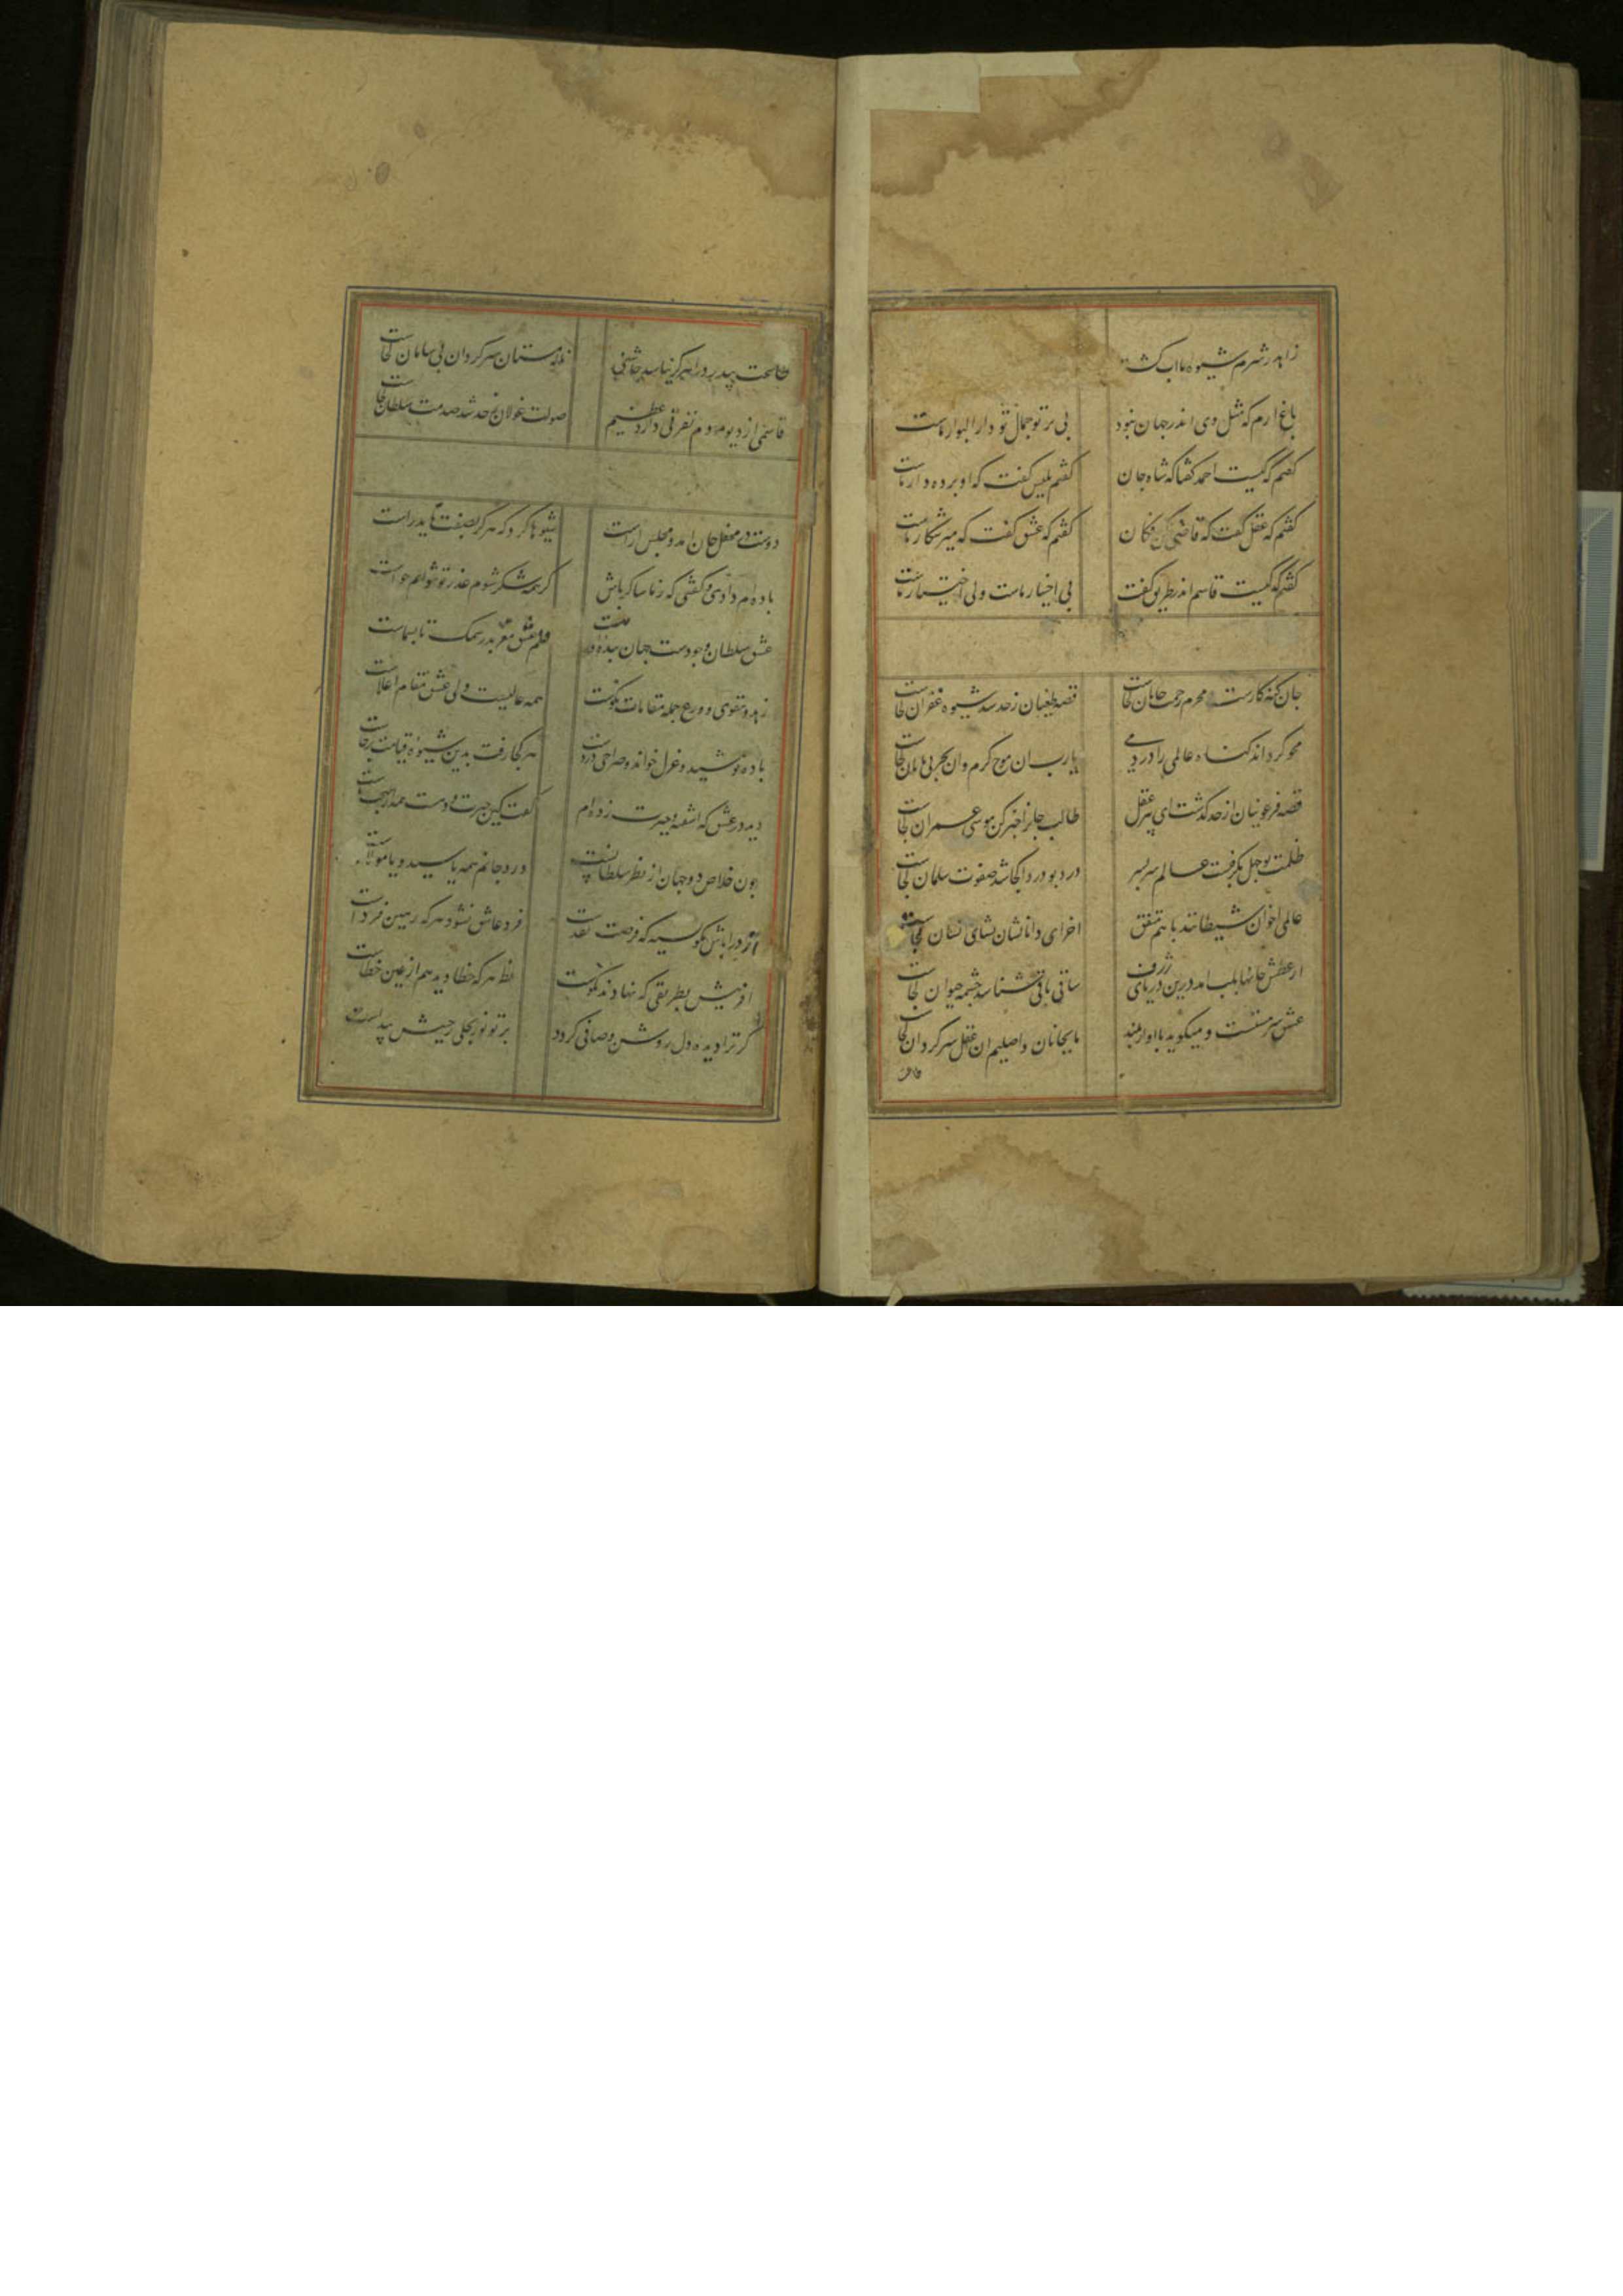 زاهد ز شرم شیوه ما آب گشت
باغ ارم که مثل وی اندر جهان نبود بی پرتو جمال تو دار البوار ماست
کفتم که کیست احمد کفتا که شاه جان کفتم بلیس کفت که او پرده دار ماست
کفتم که عقل کفت که قاضی کن فکان کفتم که عشق کفت که میر شکار ماست
کفتم که کیست قاسم اندر طریق کفت بی اختیار ماست ولی اختیار ماست
جان کنه کارست محرم رحمت جانان کجاست قصه طغیان ز حد شد شیوه غفران کجاست
محو کرداند کناه عالمی را در دمی یارب ان موج کرم وان بحر بی پایان کجاست
قصه فرعونیان از حد کذشت ای پیر عقل طالب جان را خبر کن موسی عمران کجاست
ظلمت بوجهل بکرفت عالم سربسر درد بودردا کجا شد صفوت سلمان کجاست
عالمی اخوان شیطانند با هم متفق اخر ای دانا نشان نشای نشان کجاست
از عطش جانها بلب امد درین دریای ژرف ساقی باقی شناسد چشمه حیوان کجاست
عشق سرمستست و میکوید باواز بلند ما بجانان واصلیم ان عقل سرکردان کجاست
بی درد را هرکز نباشد چاشنی ناله مستان سرکردان بی سامان کجاست
قاسمی از دیو مردم تفرقی دارد عظیم صولت غولان ز حد شد صدمت سلطان کجاست
دوست در محفل جان امد و مجلس اراست شیوها کرد که هرکز بصفت ناید راست
باده ام دادی و کفتی که ز ما شاکر باش کر همه شکر شوم عذر تو نتوانم خواست
عشق سلطان وجودست جهان بنده قلم عشق معربد ز سمک تا بسماست
زهد و تقوی و ورع جمله مقامات نکوست همه عالیست ولی عشق مقام اعلاست
باده نوشید و غزل خواند و صراحی در دست هر کجا رفت بدین شیوه قیامت برخاست
دید در عشق که اشفته و حیرت زده ام کفت کین حیرت و دهشت همه از جانب ماست
چون خلاص دو جهان از نظر سلطانست در دو جانم همه یا سید و یا مولاست
اخر در باش مکو نسیه که فرصت نقدست فرد عاشق نشود هر که رهین فرداست
افرینش بطریقی که نهادند نکوست نظر هر که خطا دید هم از عین خطاست
کر ترا دیده دل روشن و صافی کردد پرتو نور تجلی ز جبینش پیداست